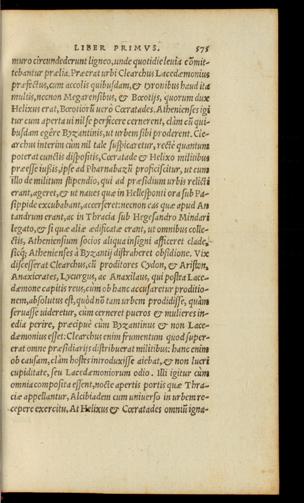 LIBER PRIMVS. 575
muro circundederunt ligneo, unde quotidie leuia cõmit-
tebantur prælia. Præerat urbi Clearchus Lacedæmonius
præfectus, cum accolis quibusdam, & tyronibus haud ita
multis, necnon Megarensibus, & Bœotijs, quorum dux
Helixus erat, Bœotiorũ uerò Cœratades. Athenienses igi
tur cum aperta ui nil se perficere cernerent, clàm cũ qui-
busdam egêre Byzantinis, ut urbem sibi proderent. Cle-
archus interim cùm nil tale suspicaretur, rectè quantum
poterat cunctis dispositis, Cœratade & Helixo militibus
præesse iußis, ipse ad Pharnabazũ proficiscitur, ut cum
illo de militum stipendio, qui ad præsidium urbis relicti
erant, ageret, & ut naues quæ in Hellesponti ora sub Pa-
sippide excubabant, accerseret: necnon eas quæ apud An
tandrum erant, ac in Thracia sub Hegesandro Mindari
legato, & si quæ aliæ ædificatæ erant, ut omnibus colle-
ctis, Atheniensium socios aliqua insigni afficeret clade,
sicq; Athenienses à Byzantij distraheret obsidione. Vix
discesserat Clearchus, cùm proditores Cydon, & Ariston,
Anaxicrates, Lycurgus, ac Anaxilaus, qui postea Lace-
dæmone capitis reus, cùm ob hanc accusaretur proditio-
nem, absolutus est, quòd nõ tam urbem prodidisse, quàm
seruasse uideretur, cum cerneret pueros & mulieres in-
edia perire, præcipuè cùm Byzantinus & non Lace-
dæmonius esset: Clearchus enim frumentum quod super-
erat omne præsidiarijs distribuerat militibus: hanc enim
ob causam, clàm hostes introduxisse aiebat, & non lucri
cupiditate, seu Lacedæmoniorum odio. Illi igitur cùm
omnia composita essent, nocte apertis portis quæ Thra-
ciæ appellantur, Alcibiadem cum uniuerso in urbem re-
cepere exercitu. At Helixus & Cœratades omniũ igna-